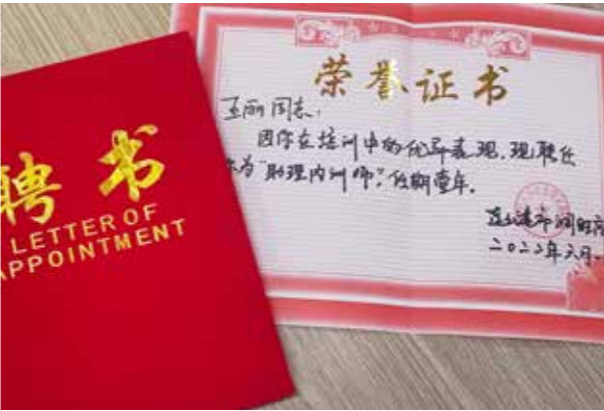 聘书
LETTER OF
APPOINTMENT
荣誉证书
王丽同志:
因你在培训中的优异表现,现聘任
你为"助理内训师",任期壹年。
连云港市润旺
二〇二二年六月